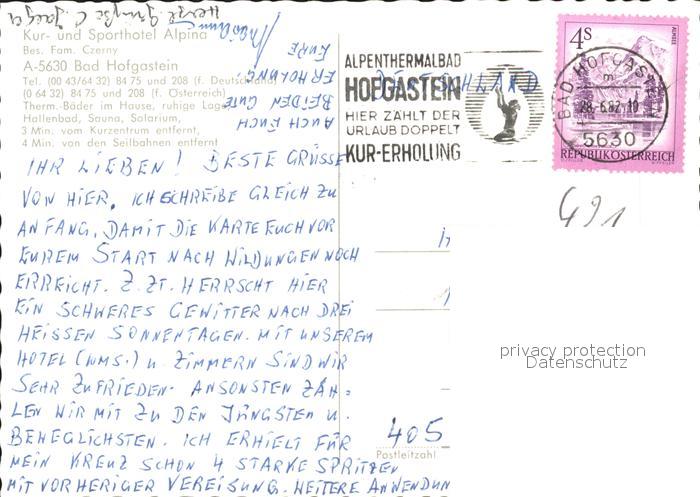 Kur- und Sporthotel Alpina
Bes. Fam. Czerny
A-5630 Bad Hofgastein
Tel. (00 43/64 32) 84 75 und 208 (f. Deutschland)
(0 64 32) 84 75 und 208 (f. Österreich)
Therm.-Bäder im Hause, ruhige Lage
Hallenbad, Sauna, Solarium,
3 Min. vom Kurzentrum entfernt,
4 Min. von den Seilbahnen entfernt
IHR LIEBEN! BESTE GRÜSSE
VON HIER. ICH SCHREIBE GLEICH ZU
ANFANG, DAMIT DIE KARTE EUCH VOR
EUREM START NACH WILDUNGEN NOCH
ERREICHT. Z. ZT. HERRSCHT HIER
EIN SCHWERES GEWITTER NACH DREI
HEISSEN SONNENTAGEN. MIT UNSEREM
HOTEL (UMS.) U. ZIMMERN SIND WIR
SEHR ZUFRIEDEN. ANSONSTEN ZÄH=
LEN WIR MIT ZU DEN JÜNGSTEN U.
BEWEGLICHSTEN. ICH ERHIELT FÜR
MEIN KREUZ SCHON 4 STARKE SPRITZEN
MIT VORHERIGER VEREISUNG. WEITERE ANWENDUN
AUCH EUCH
BEIDEN GUTE
ERHOLUNG
EURE
Herzl. Grüße
ALPENTHERMALBAD
HOFGASTEIN
HIER ZÄHLT DER
URLAUB DOPPELT
KUR-ERHOLUNG
DEUTSCHLAND
4S
ALMSEE
BAD HOFGASTEIN
m
28.-6.82-19
5630
REPUBLIK ÖSTERREICH
491
405
Postleitzahl
privacy protection
Datenschutz